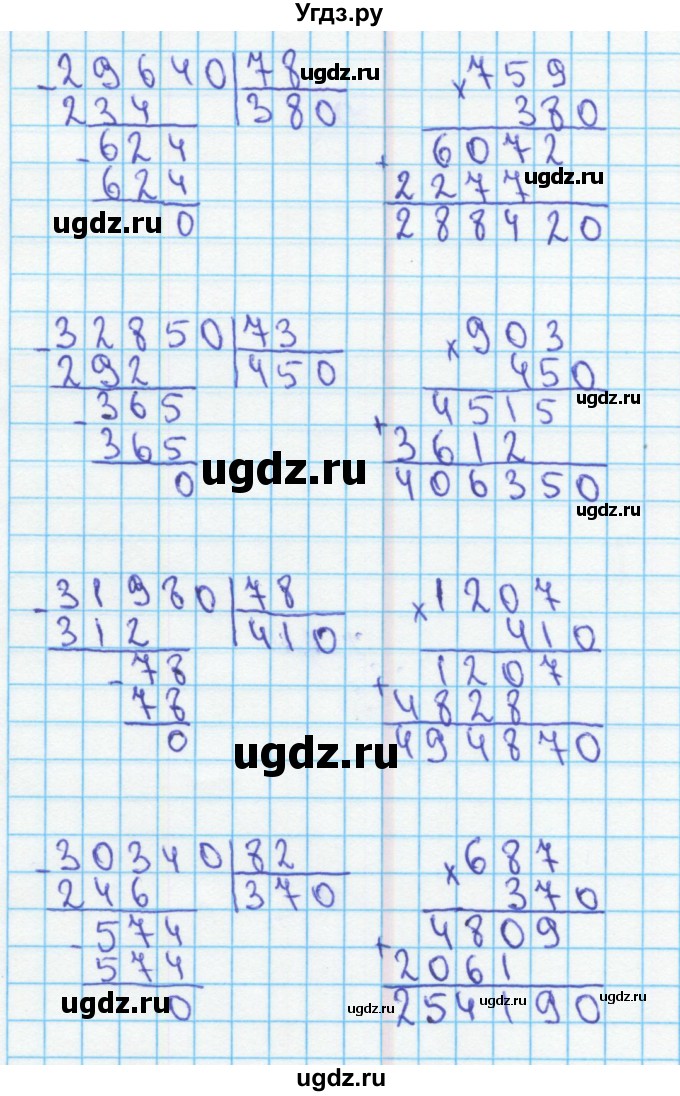 Угдз.ру
- 29640 | 78 ugdz.ru
234 | 380
- 624
624
ugdz.ru 0
× 759
380
+ 6072
2277 ugdz.ru
288420
- 32850 | 73
292 | 450
- 365
365
0 ugdz.ru
× 903
450
ugdz.ru
+ 4515
3612
406350
ugdz.ru
- 31980 | 78
312 | 410
- 78
78
0
ugdz.ru
× 1207
410
+ 1207
4828
494870
- 30340 | 82
246 | 370
- 574
574
ugdz.ru 0
× 687
370
+ 4809
2061
ugdz.ru ugdz.ru ugdz.ru
254190
ugdz.ru